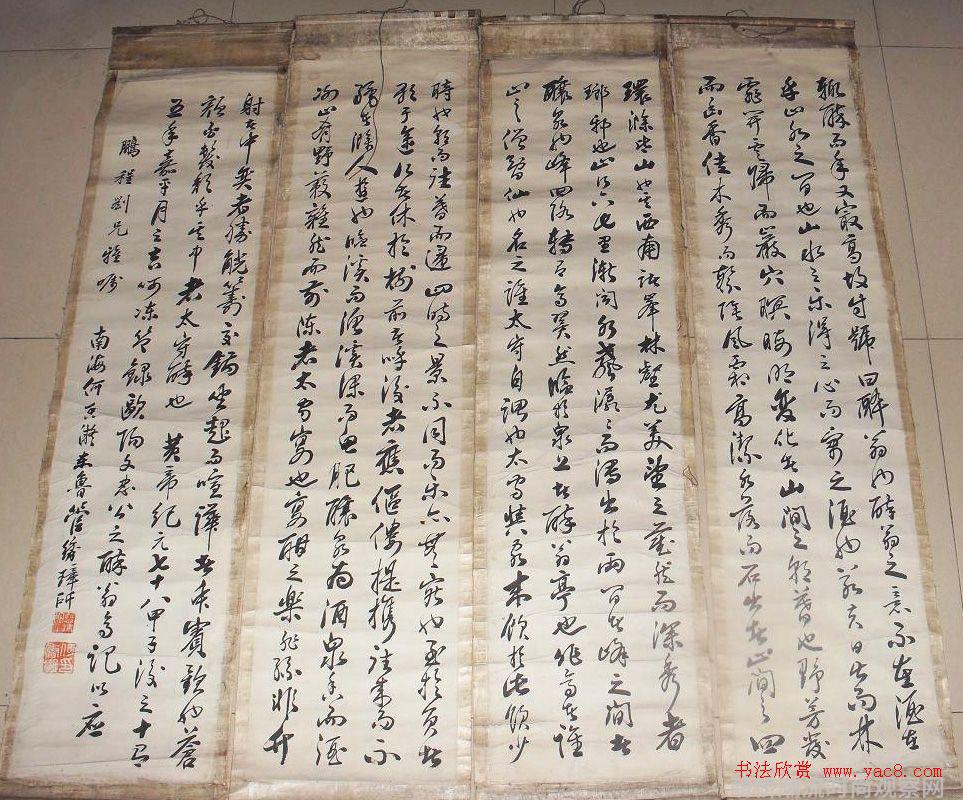 輒醉而年又最高故自號曰醉翁也醉翁之意不在酒在
乎山水之間也山水之樂得之心而寓之酒也若夫日出而林
霏開雲歸而巖穴暝晦明變化者山間之朝暮也野芳發
而幽香佳木秀而繁陰風霜高潔水落而石出者山間之四
環滁皆山也其西南諸峯林壑尤美望之蔚然而深秀者
瑯邪也山行六七里漸聞水聲潺潺而瀉出於兩間者峰之間者
釀泉也峰回路轉有亭翼然臨於泉上者醉翁亭也作亭者誰
山之僧智仙也名之誰太守自謂也太守與客來飲於此飲少
時也朝而往暮而還四時之景不同而樂亦無窮也至於負者
歌于塗行者休於樹前者呼後者應傴僂提攜往來而不
絕者滁人遊也臨溪而漁溪深而魚肥釀泉為酒泉香而酒
冽山肴野蔌雜然而前陳者太守宴也宴酣之樂非絲非竹
射者中奕者勝觥籌交錯坐起而喧譁者衆賓歡也蒼
顏白髮頹乎其中者太守醉也 黃帝紀元七十八甲子後之十有
五年嘉平月之吉呵凍筆錄歐陽文忠公之醉翁亭記以應
鵬程劉兄雅囑
南海何東魯
书法欣赏 www.yac8.com